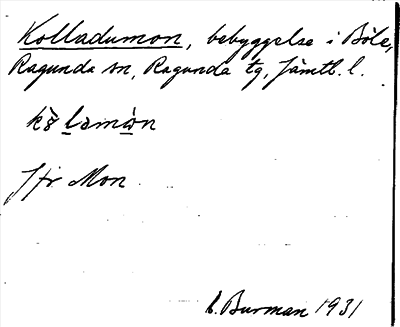 Kolladumon, bebyggelse i Böle,
Ragunda sn, Ragunda tg, Jämtl. l.
Jfr Mon.
Burman 1931